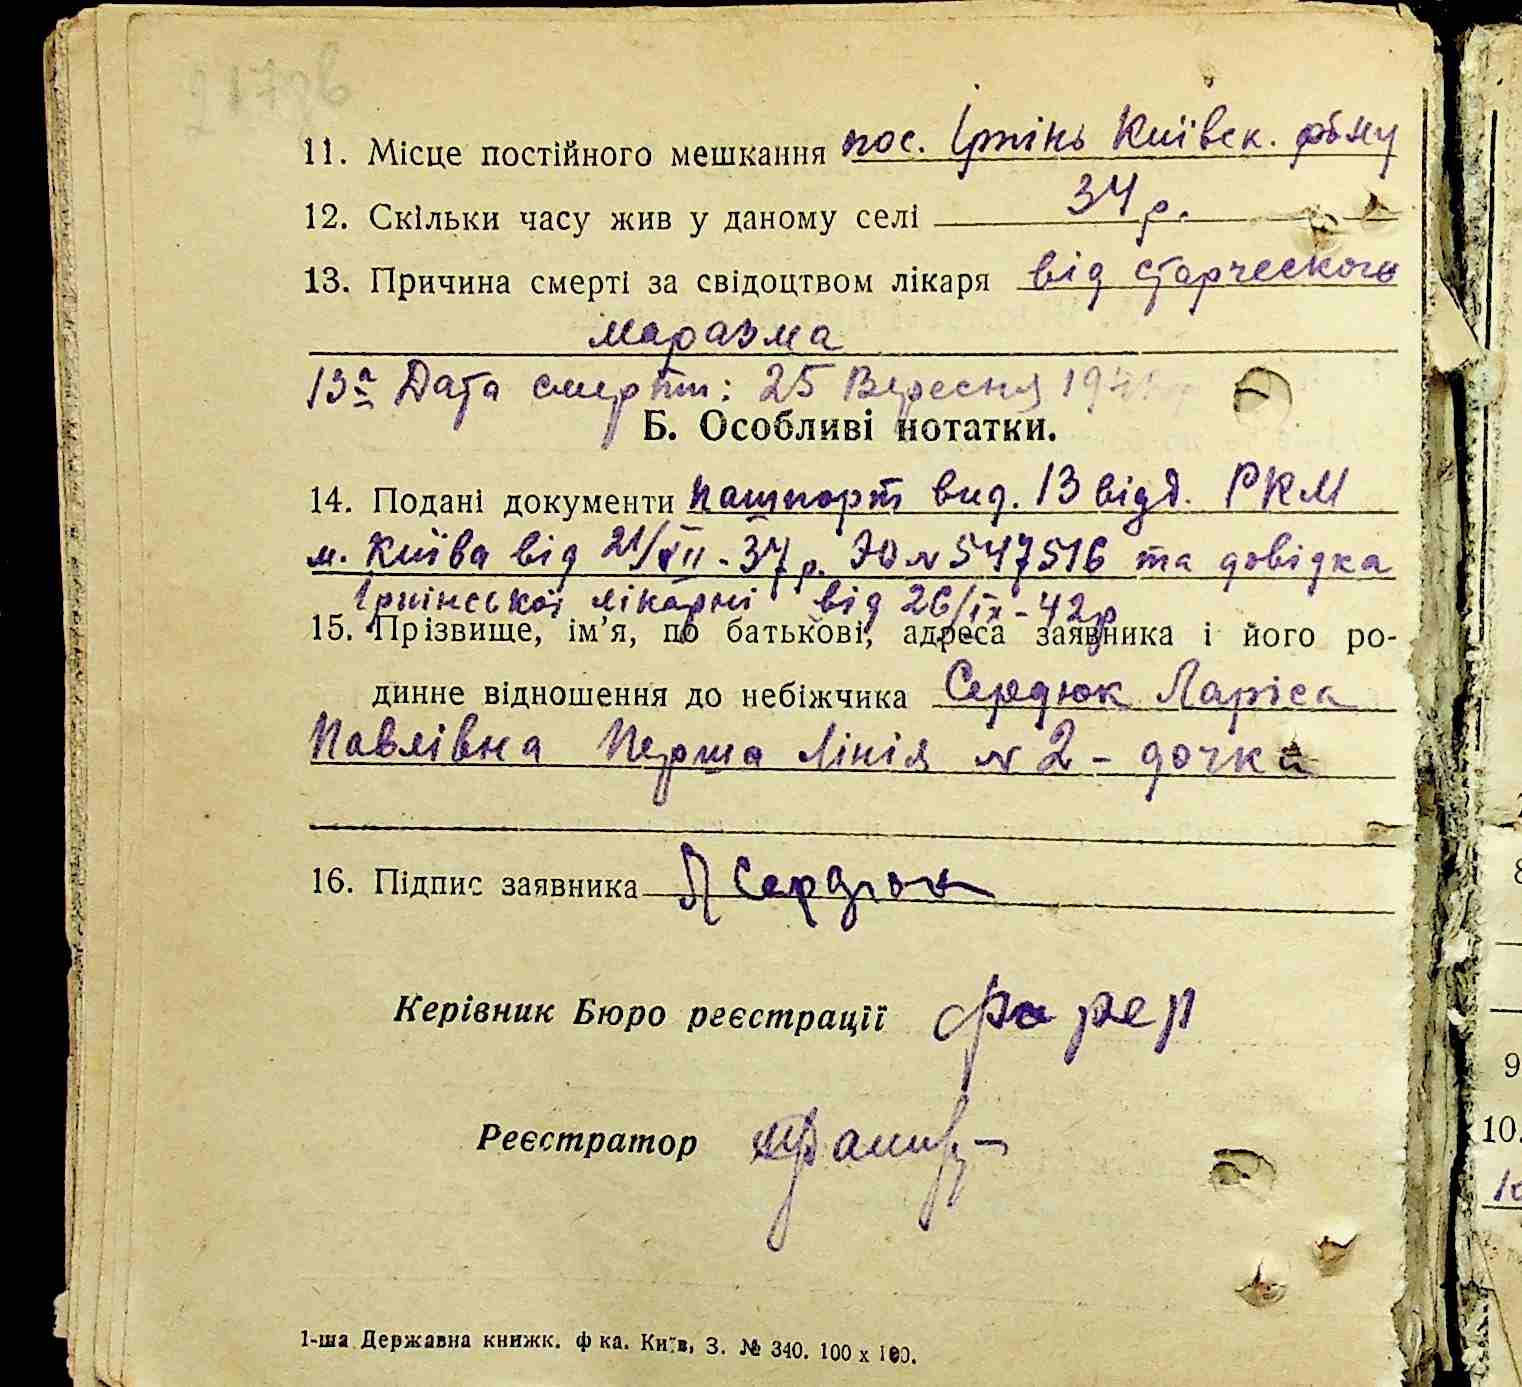 11. Місце постійного мешкання пос. Ірпінь Київск.
12. Скільки часу жив у даному селі 34 р.
13. Причина смерті за свідоцтвом лікаря від старческого
маразма
13а Дата смерти: 25 Вересня
Б. Особливі нотатки.
14. Подані документи пашпорт вид. 13 відд. РКМ
м. Київа від 21/XII-37 р. ЭЮ № 547516 та довідка
Ірпінської лікарні від 26/IX-42р
15. Прізвище, ім’я, по батькові, адреса заявника і його ро-
динне відношення до небіжчика Сердюк Ларіса
Павлівна Перша Лінія № 2 - дочка
16. Підпис заявника Л Сердюк
Керівник Бюро реєстрації
Реєстратор
1-ша Державна книжк. ф ка. Київ, З. № 340. 100 х 100.
9
10.